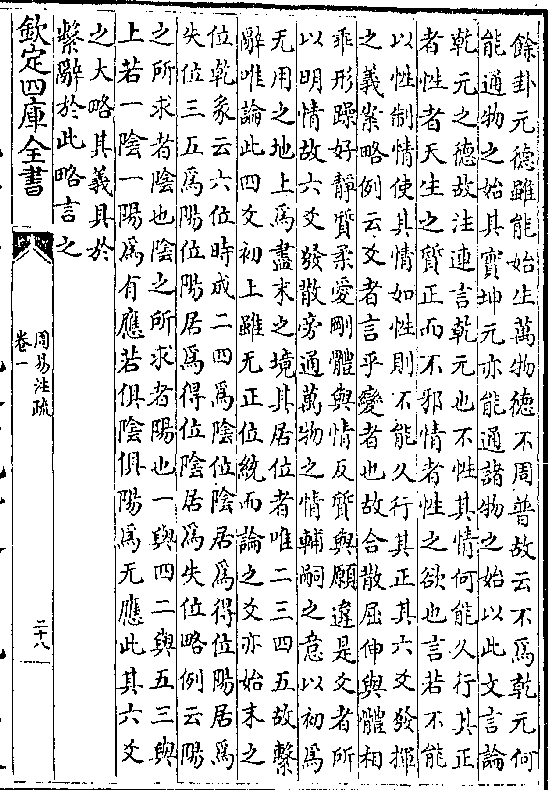 餘卦元德雖能始生萬物德不周普故云不爲乾元何
能通物之始其實坤元亦能通諸物之始以此文言論
乾元之德故注連言乾元也不性其情何能久行其正
者性者天生之質正而不邪情者性之欲也言若不能
以性制情使其情如性則不能久行其正其六爻發揮
之義案略例云爻者言乎變者也故合散屈伸與體相
乖形躁好靜質柔愛剛體與情反質與願違是爻者所
以明情故六爻發散旁通萬物之情輔嗣之意以初爲
无用之地上爲盡末之境其居位者唯二三四五故繫
辭唯論此四爻初上雖无正位統而論之爻亦始末之
位乾彖云六位時成二四爲陰位陰居爲得位陽居爲
失位三五爲陽位陽居爲得位陰居爲失位略例云陽
之所求者陰也陰之所求者陽也一與四二與五三與
上若一陰一陽爲有應若俱陰俱陽爲无應此其六爻
之大略其義具於
繫辭於此略言之
欽定四庫全書
周易注疏
卷一
二十八